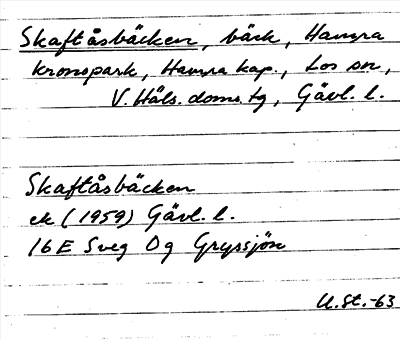 Skaftåsbäcken, bäck, Hamra
kronopark, Hamra kap., Los sn,
V. Häls. doms. tg, Gävl. l.
Skaftåsbäcken
ek (1959) Gävl. l.
16E Sveg Og Gryssjön
U.St.-63